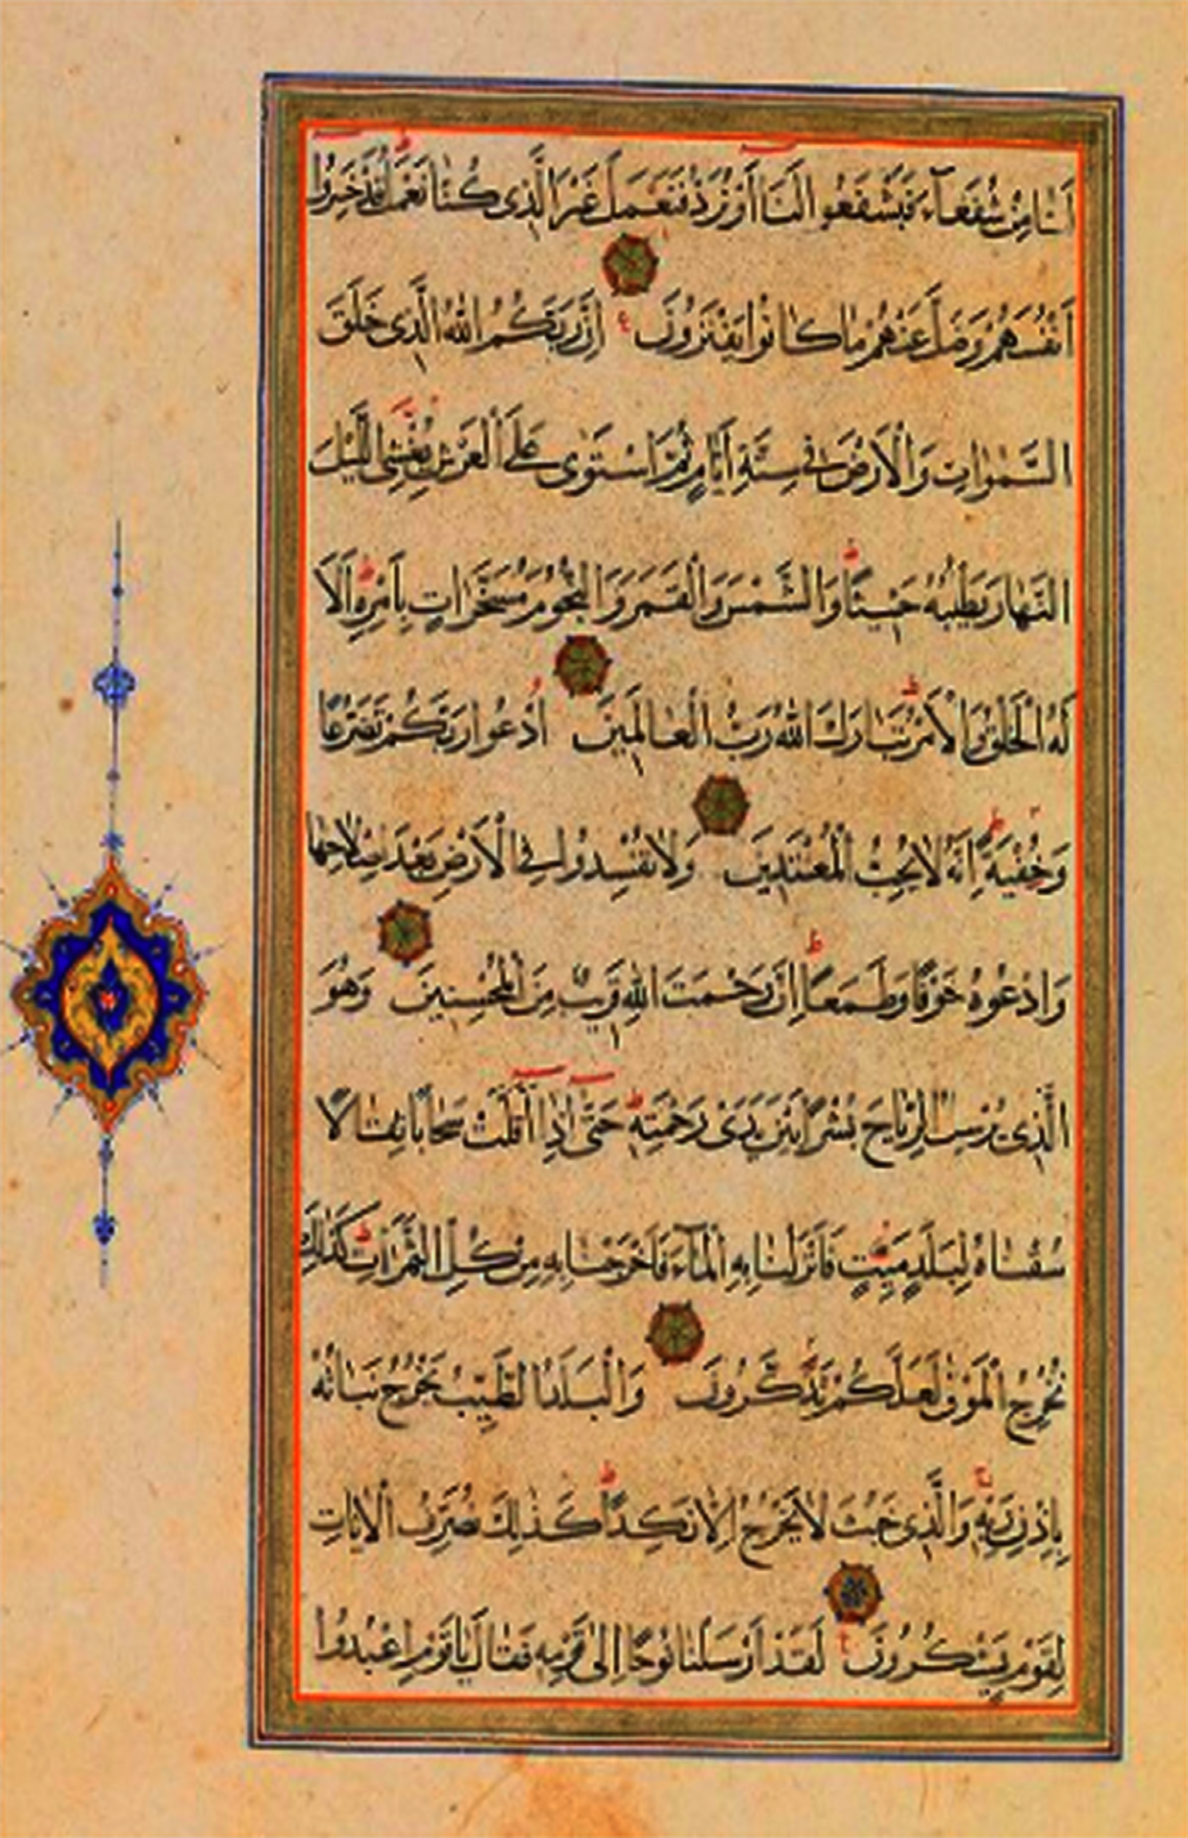 لَنَا مِنْ شُفَعَآءَ فَيَشْفَعُوا لَنَا أَوْ نُرَدُّ فَنَعْمَلَ غَيْرَ الَّذِى كُنَّا نَعْمَلُ قَدْ خَسِرُوا
أَنْفُسَهُمْ وَضَلَّ عَنْهُمْ مَا كَانُوا يَفْتَرُونَ ع إِنَّ رَبَّكُمُ اللّٰهُ الَّذِى خَلَقَ
السَّمٰوَاتِ وَالْأَرْضَ فِى سِتَّةِ أَيَّامٍ ثُمَّ اسْتَوٰى عَلَى الْعَرْشِ يُغْشِى اللَّيْلَ
النَّهَارَ يَطْلُبُهُ حَثِيثًا ط وَالشَّمْسَ وَالْقَمَرَ وَالنُّجُومَ مُسَخَّرَاتٍ بِأَمْرِهِ ط أَلَا
لَهُ الْخَلْقُ وَالْأَمْرُ ط تَبَارَكَ اللّٰهُ رَبُّ الْعَالَمِينَ اُدْعُوا رَبَّكُمْ تَضَرُّعًا
وَخُفْيَةً ط إِنَّهُ لَا يُحِبُّ الْمُعْتَدِينَ وَلَا تُفْسِدُوا فِى الْأَرْضِ بَعْدَ إِصْلَاحِهَا
وَادْعُوهُ خَوْفًا وَطَمَعًا ط إِنَّ رَحْمَتَ اللّٰهِ قَرِيبٌ مِنَ الْمُحْسِنِينَ وَهُوَ
الَّذِى يُرْسِلُ الرِّيَاحَ بُشْرًا بَيْنَ يَدَىْ رَحْمَتِهِ ط حَتّٰى إِذَا أَقَلَّتْ سَحَابًا ثِقَالًا
سُقْنَاهُ لِبَلَدٍ مَيِّتٍ فَأَنْزَلْنَا بِهِ الْمَآءَ فَأَخْرَجْنَا بِهِ مِنْ كُلِّ الثَّمَرَاتِ ط كَذٰلِكَ
نُخْرِجُ الْمَوْتٰى لَعَلَّكُمْ تَذَكَّرُونَ وَالْبَلَدُ الطَّيِّبُ يَخْرُجُ نَبَاتُهُ
بِإِذْنِ رَبِّهِ ج وَالَّذِى خَبُثَ لَا يَخْرُجُ إِلَّا نَكِدًا ط كَذٰلِكَ نُصَرِّفُ الْآيَاتِ
لِقَوْمٍ يَشْكُرُونَ ع لَقَدْ أَرْسَلْنَا نُوحًا إِلٰى قَوْمِهِ فَقَالَ يَا قَوْمِ اعْبُدُوا